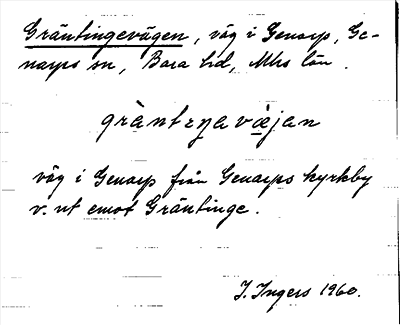 Gräntingevägen, väg i Genarp, Ge-
narps sn, Bara hd, Mhs län.
väg i Genarp från Genarps kyrkby
v. ut emot Gräntinge.
I. Ingers 1960.